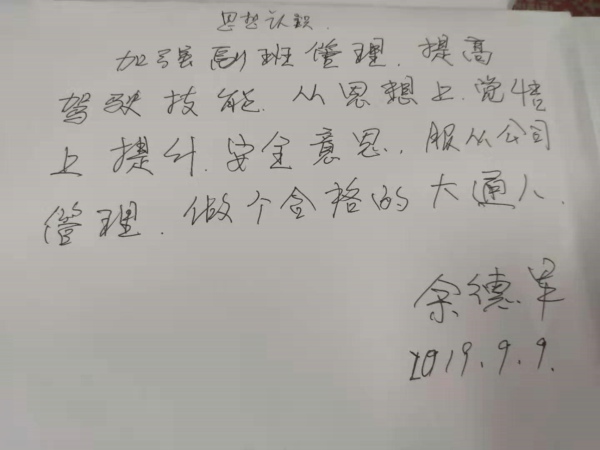 思想认识.
加强副班管理.提高
驾驶技能.从思想上.觉悟
上提升.安全意思.服从公司
管理.做个合格的大通人.
余德军
2019.9.9.